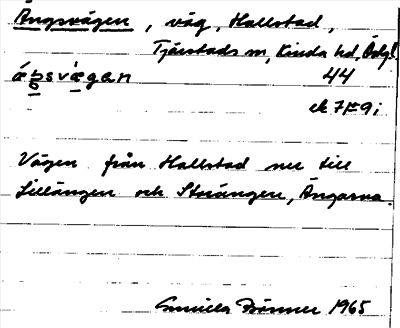 Ängsvägen, väg, Hallstad,
Tjärstads sn, Kinda hd, Ögl.
44
ek 7F9i
Vägen från Hallstad ner till
Lillängen och Storängen, Ängarna.
Gunilla 1965